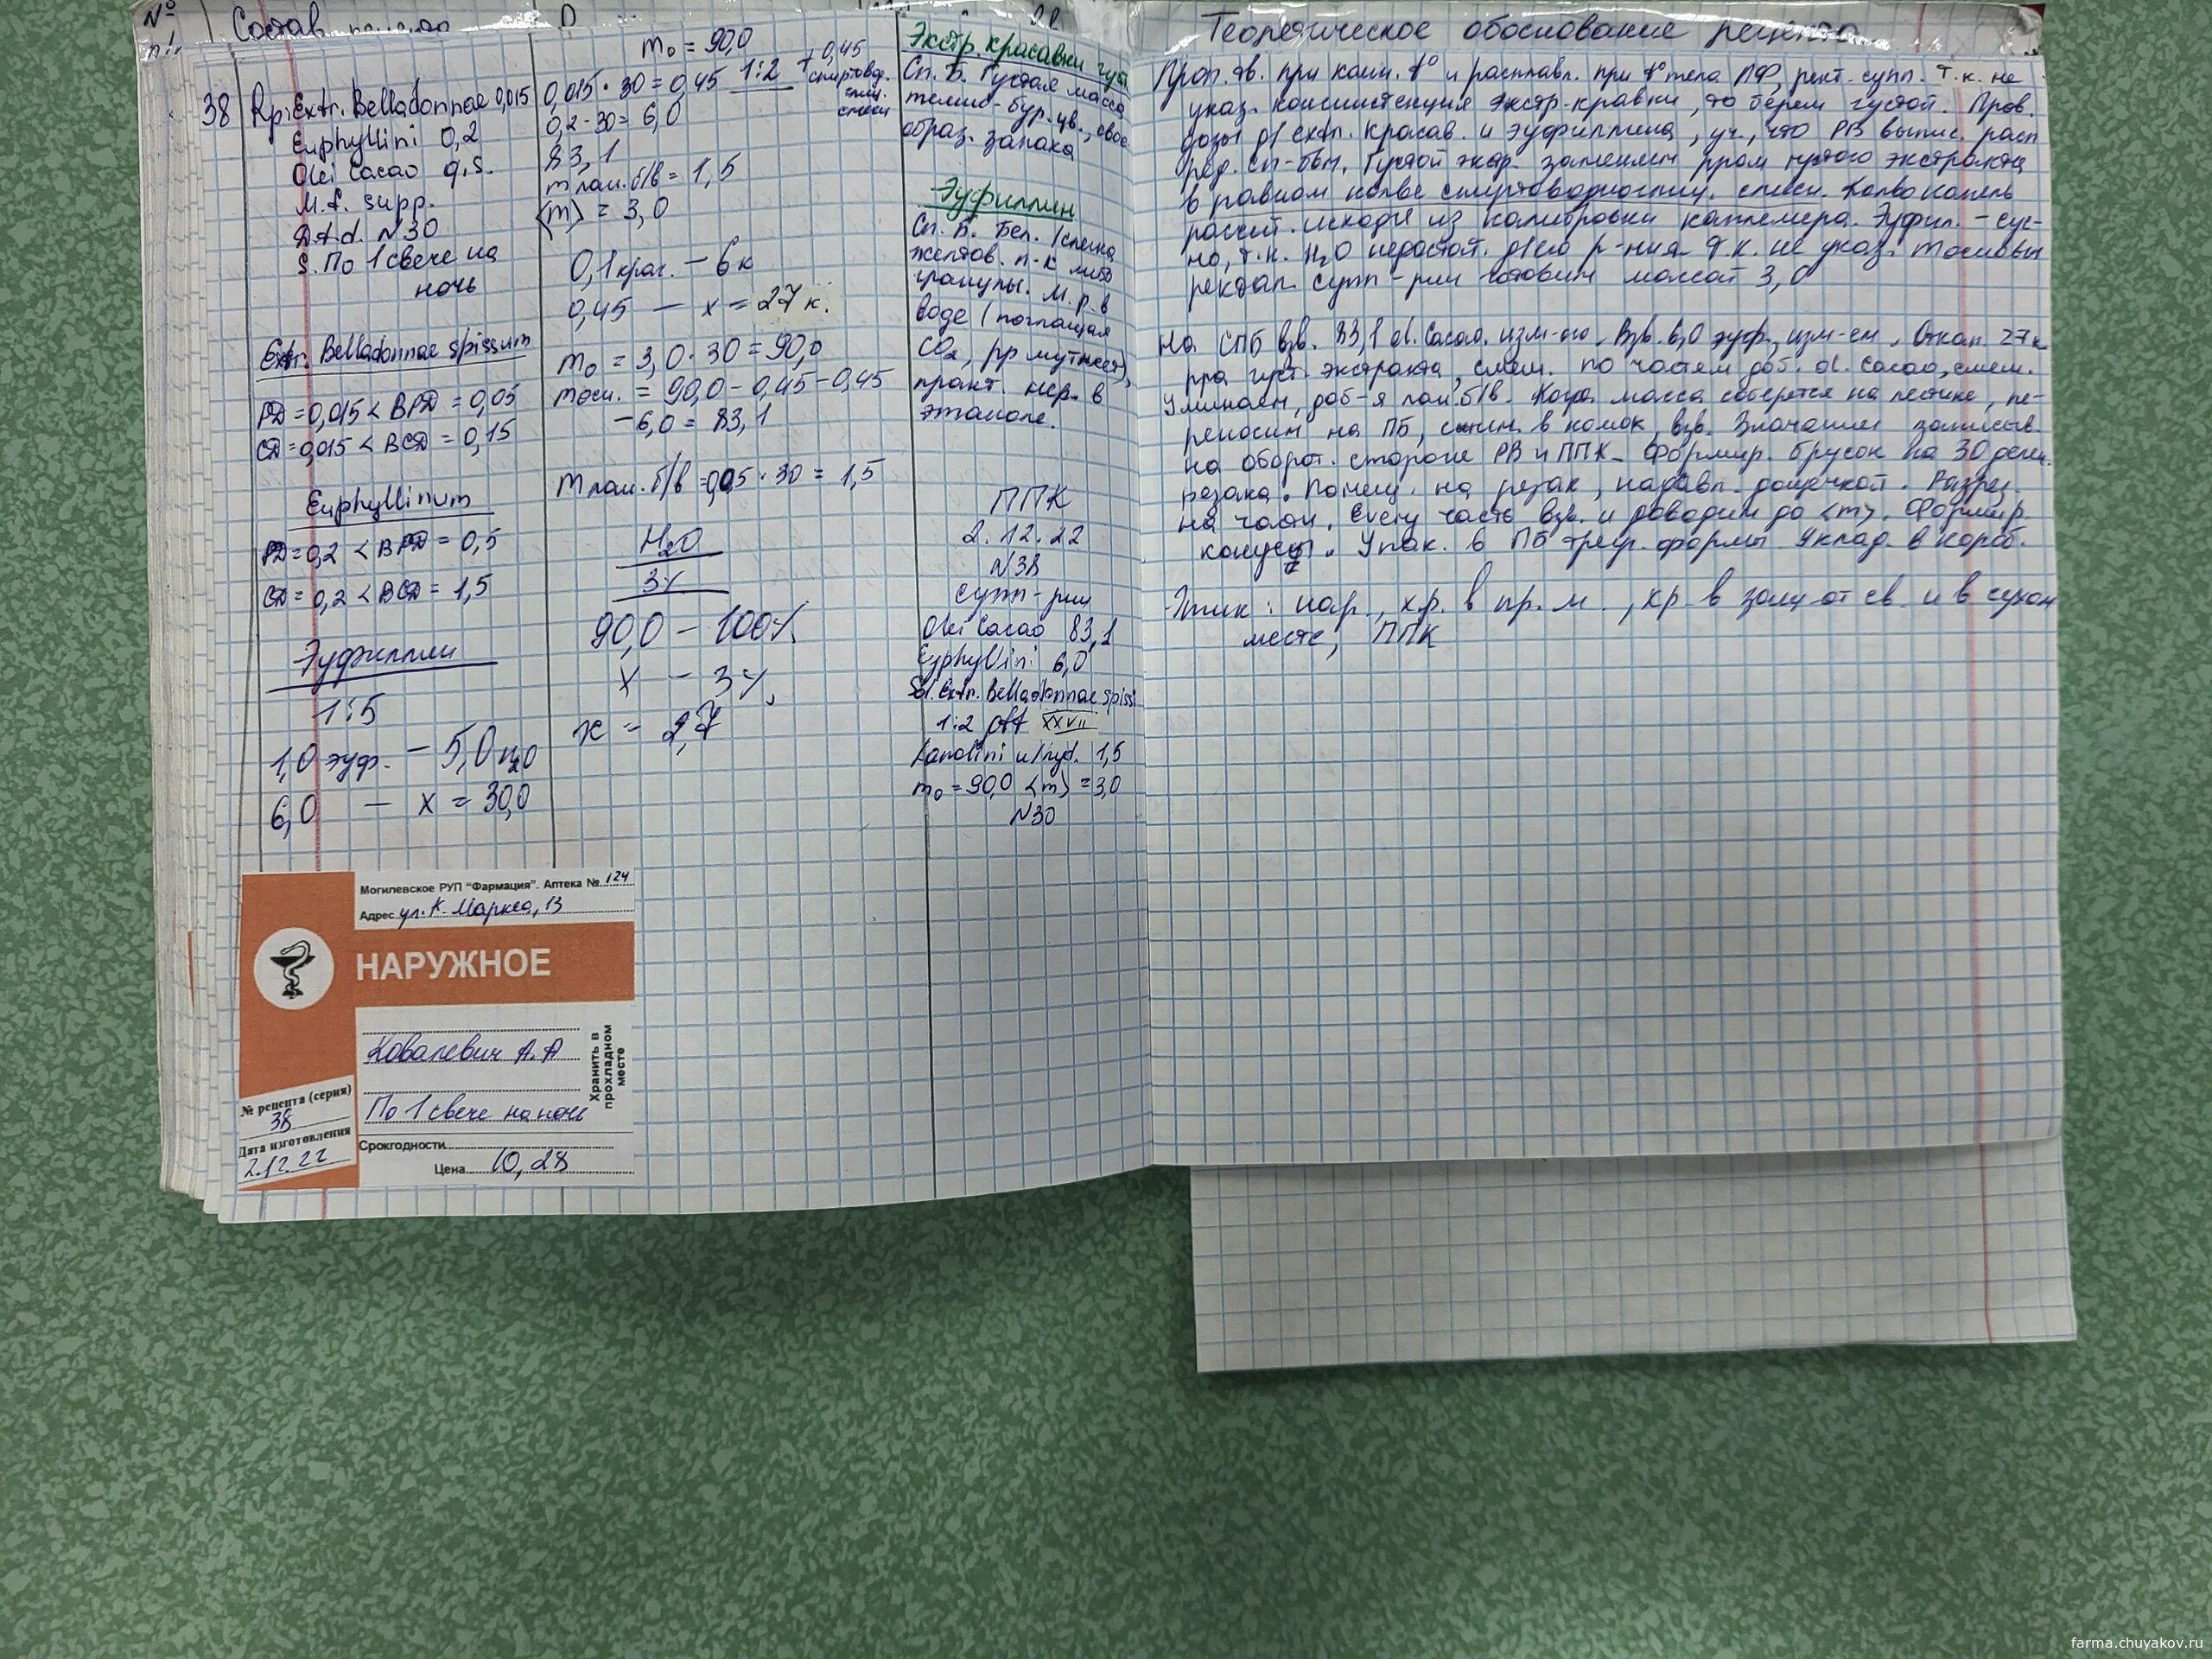 №
п/п
Состав рецепта
38
Rp: Extr. Belladonnae 0,015
Euphyllini 0,2
Olei Cacao q.s.
M.f. supp.
D.t.d. N30
S. По 1 свече на
ночь
Extr. Belladonnae spissum
РД = 0,015 < ВРД = 0,05
СД = 0,015 < ВСД = 0,15
Euphyllinum
РД = 0,2 < ВРД = 0,5
СД = 0,2 < ВСД = 1,5
Эуфиллин
1:5
1,0 эуф. – 5,0 H2O
6,0 – x = 30,0
m₀ = 90,0
0,015 · 30 = 0,45 1:2 + 0,45
спиртовод.
глиц.
смеси
0,2 · 30 = 6,0
83,1
m лан. б/в = 1,5
<m> = 3,0
0,1 крас. – 6 к
0,45 – x = 27 к.
m₀ = 3,0 · 30 = 90,0
m осн. = 90,0 – 0,45 – 0,45
– 6,0 = 83,1
m лан. б/в = 0,05 · 30 = 1,5
H2O
3%
90,0 – 100%
x – 3%
x = 2,7
Экстр. красавки густ
Сп. Б. Густая масса
темно-бур. цв., свое
образ. запаха
Эуфиллин
Сп. Б. Бел. /слегка
желтов. п-к либо
гранулы. М.р. в
воде (поглощая
CO₂, рр мутнеет),
практ. нер. в
этаноле.
ППК
2.12.22
N38
Супп-рии
Olei Cacao 83,1
Euphyllini 6,0
Sol. Extr. Belladonnae spissi
1:2 gtt XXVII
Lanolini anhyd. 1,5
m₀ = 90,0 <m> = 3,0
N30
Могилевское РУП "Фармация". Аптека № 124
Адрес ул. К. Маркса, 13
НАРУЖНОЕ
Ковалевич А. А
По 1 свече на ночь
Хранить в прохладном месте
№ рецепта (серия)
38
Дата изготовления
2.12.22
Срок годности
Цена 10,28
Теоретическое обоснование рецепта
Проп. тв. при комн. t° и расплавл. при t° тела ЛФ, рект. супп. Т.к. не
указ. консистенция экстр. кравки, то берем густой. Пров.
дозы д/ extr. красав. и эуфиллина, уч., что РВ выпис. расп
ред. сп-бом. Густой экстр. заменим рром густого экстракта
в равном колве спиртоводноглиц. смеси. Колво капель
рассчит. исходя из калибровки каплемера. Эуфил. – сус-
но, т.к. H2O недостат. д/его р-ния. Т.к. не указ. m основы
ректал. супп-рии готовим массой 3,0
На СПБ взв. 83,1 ol. Cacao, изм-го. Взв. 6,0 эуф., изм-ем. Откап. 27 к
рра густ. экстракта, смеш. по частям доб. ol. Cacao, смеш.
Уминаем, доб-я лан. б/в. Когда масса соберется на пестике, пе-
реносим на ПБ, скат. в комок, взв. Значение записыв.
на оборот. стороне РВ и ППК. Формир. брусок на 30 делен.
резака. Помещ. на резак, надавл. дощечкой. Разрез.
на части. Every часть взв. и доводим до <m>. Формир.
конусы. Упак. в ПБ треуг. формы. Уклад. в короб.
Этик: нар., хр. в пр. м., хр. в защ от св. и в сухом
месте, ППК
farma.chuyakov.ru